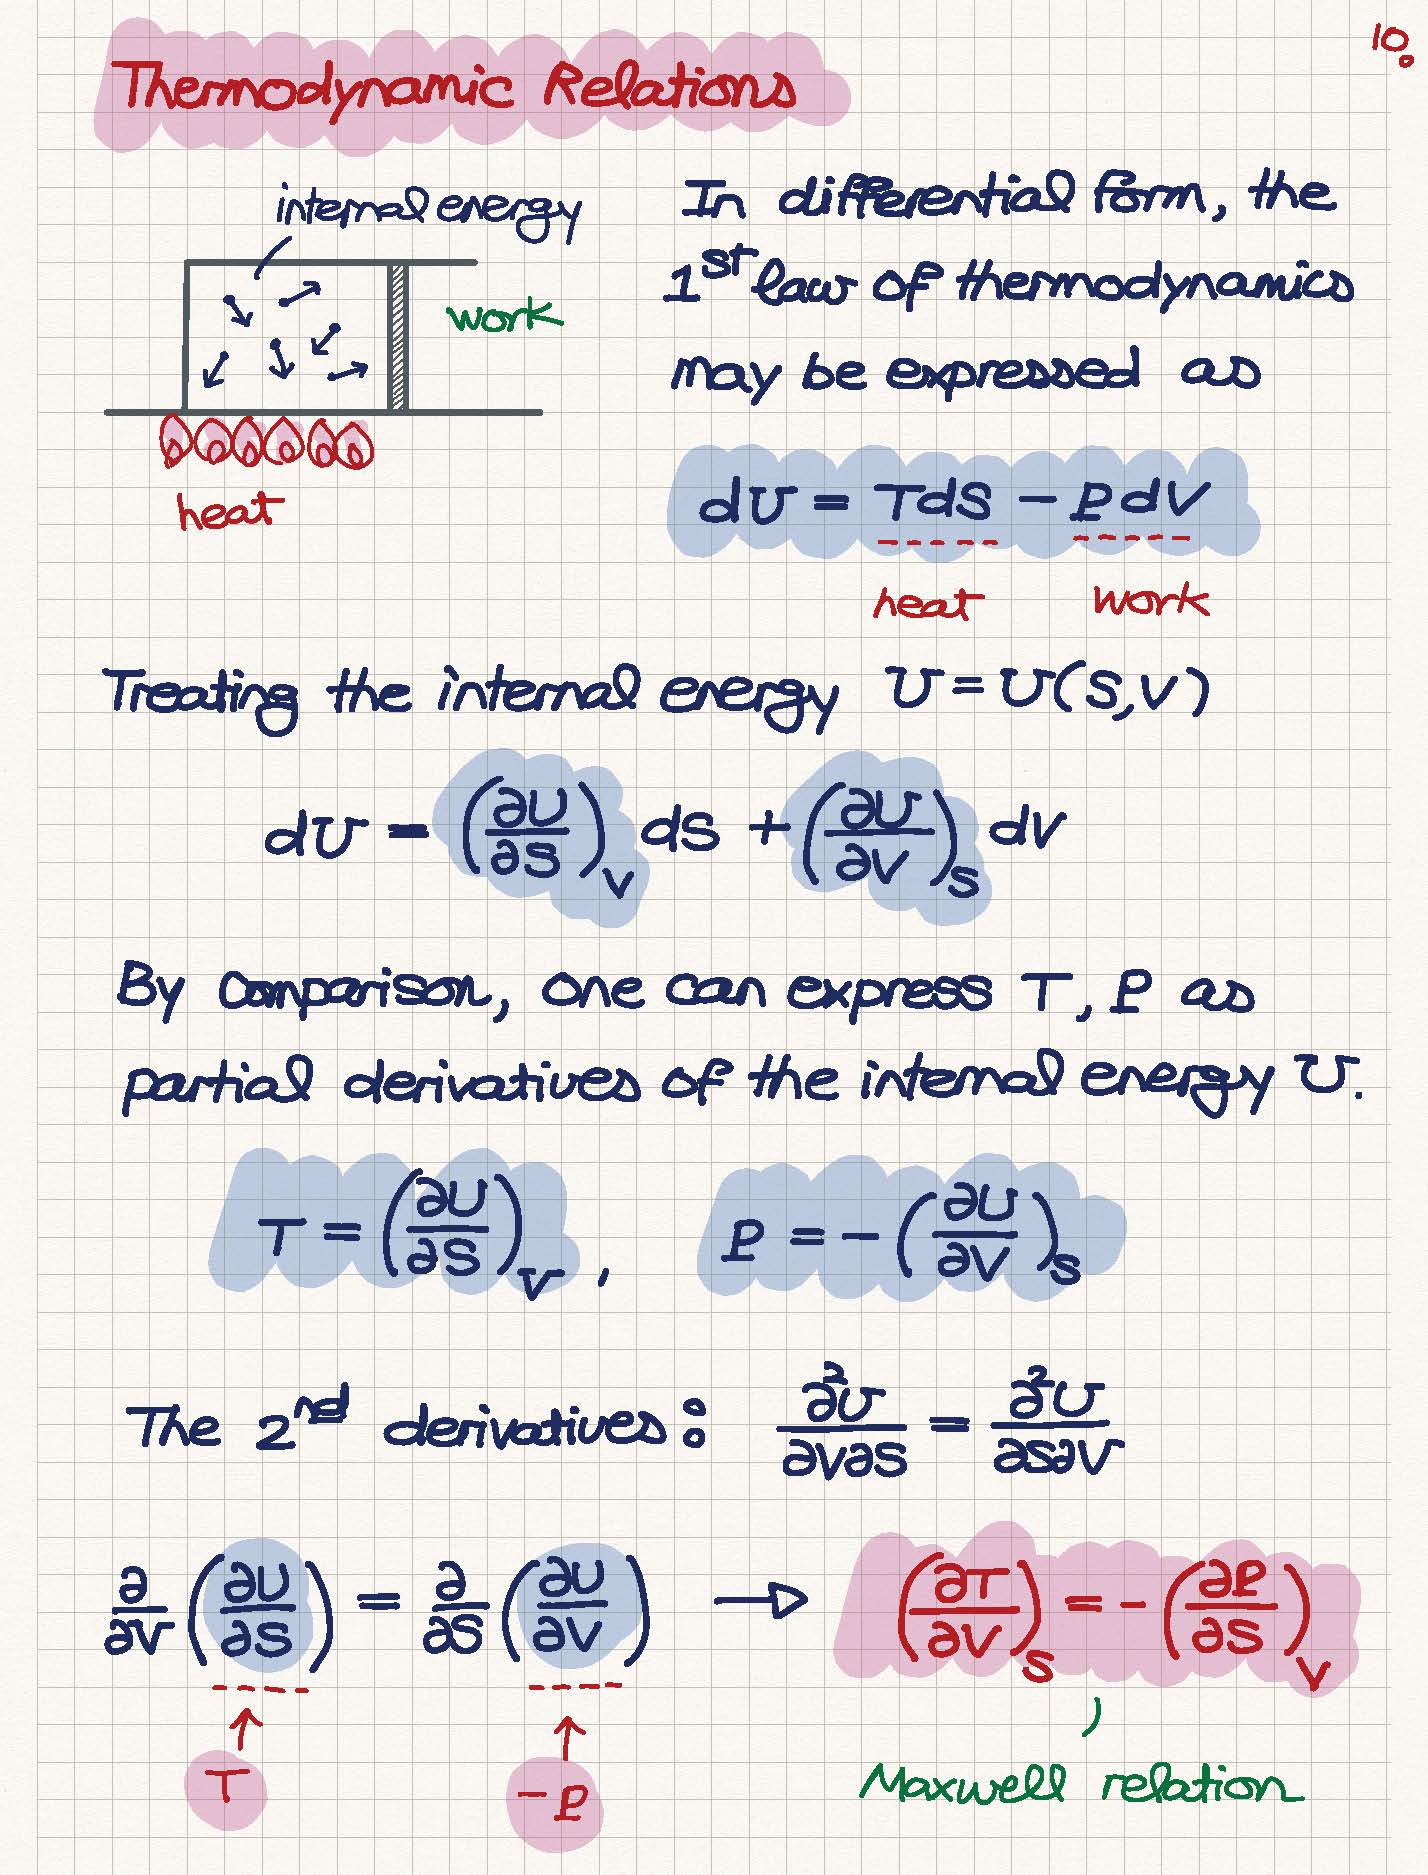 10.
Thermodynamic Relations
internal energy
work
heat
In differential form, the
1st law of thermodynamics
may be expressed as
dU = TdS - PdV
heat work
Treating the internal energy U = U(S,V)
dU = (∂U/∂S)_V dS + (∂U/∂V)_S dV
By comparison, one can express T, P as
partial derivatives of the internal energy U.
T = (∂U/∂S)_V , P = -(∂U/∂V)_S
The 2nd derivatives: ∂²U/∂V∂S = ∂²U/∂S∂V
∂/∂V (∂U/∂S) = ∂/∂S (∂U/∂V) → (∂T/∂V)_S = -(∂P/∂S)_V
T -P
Maxwell relation